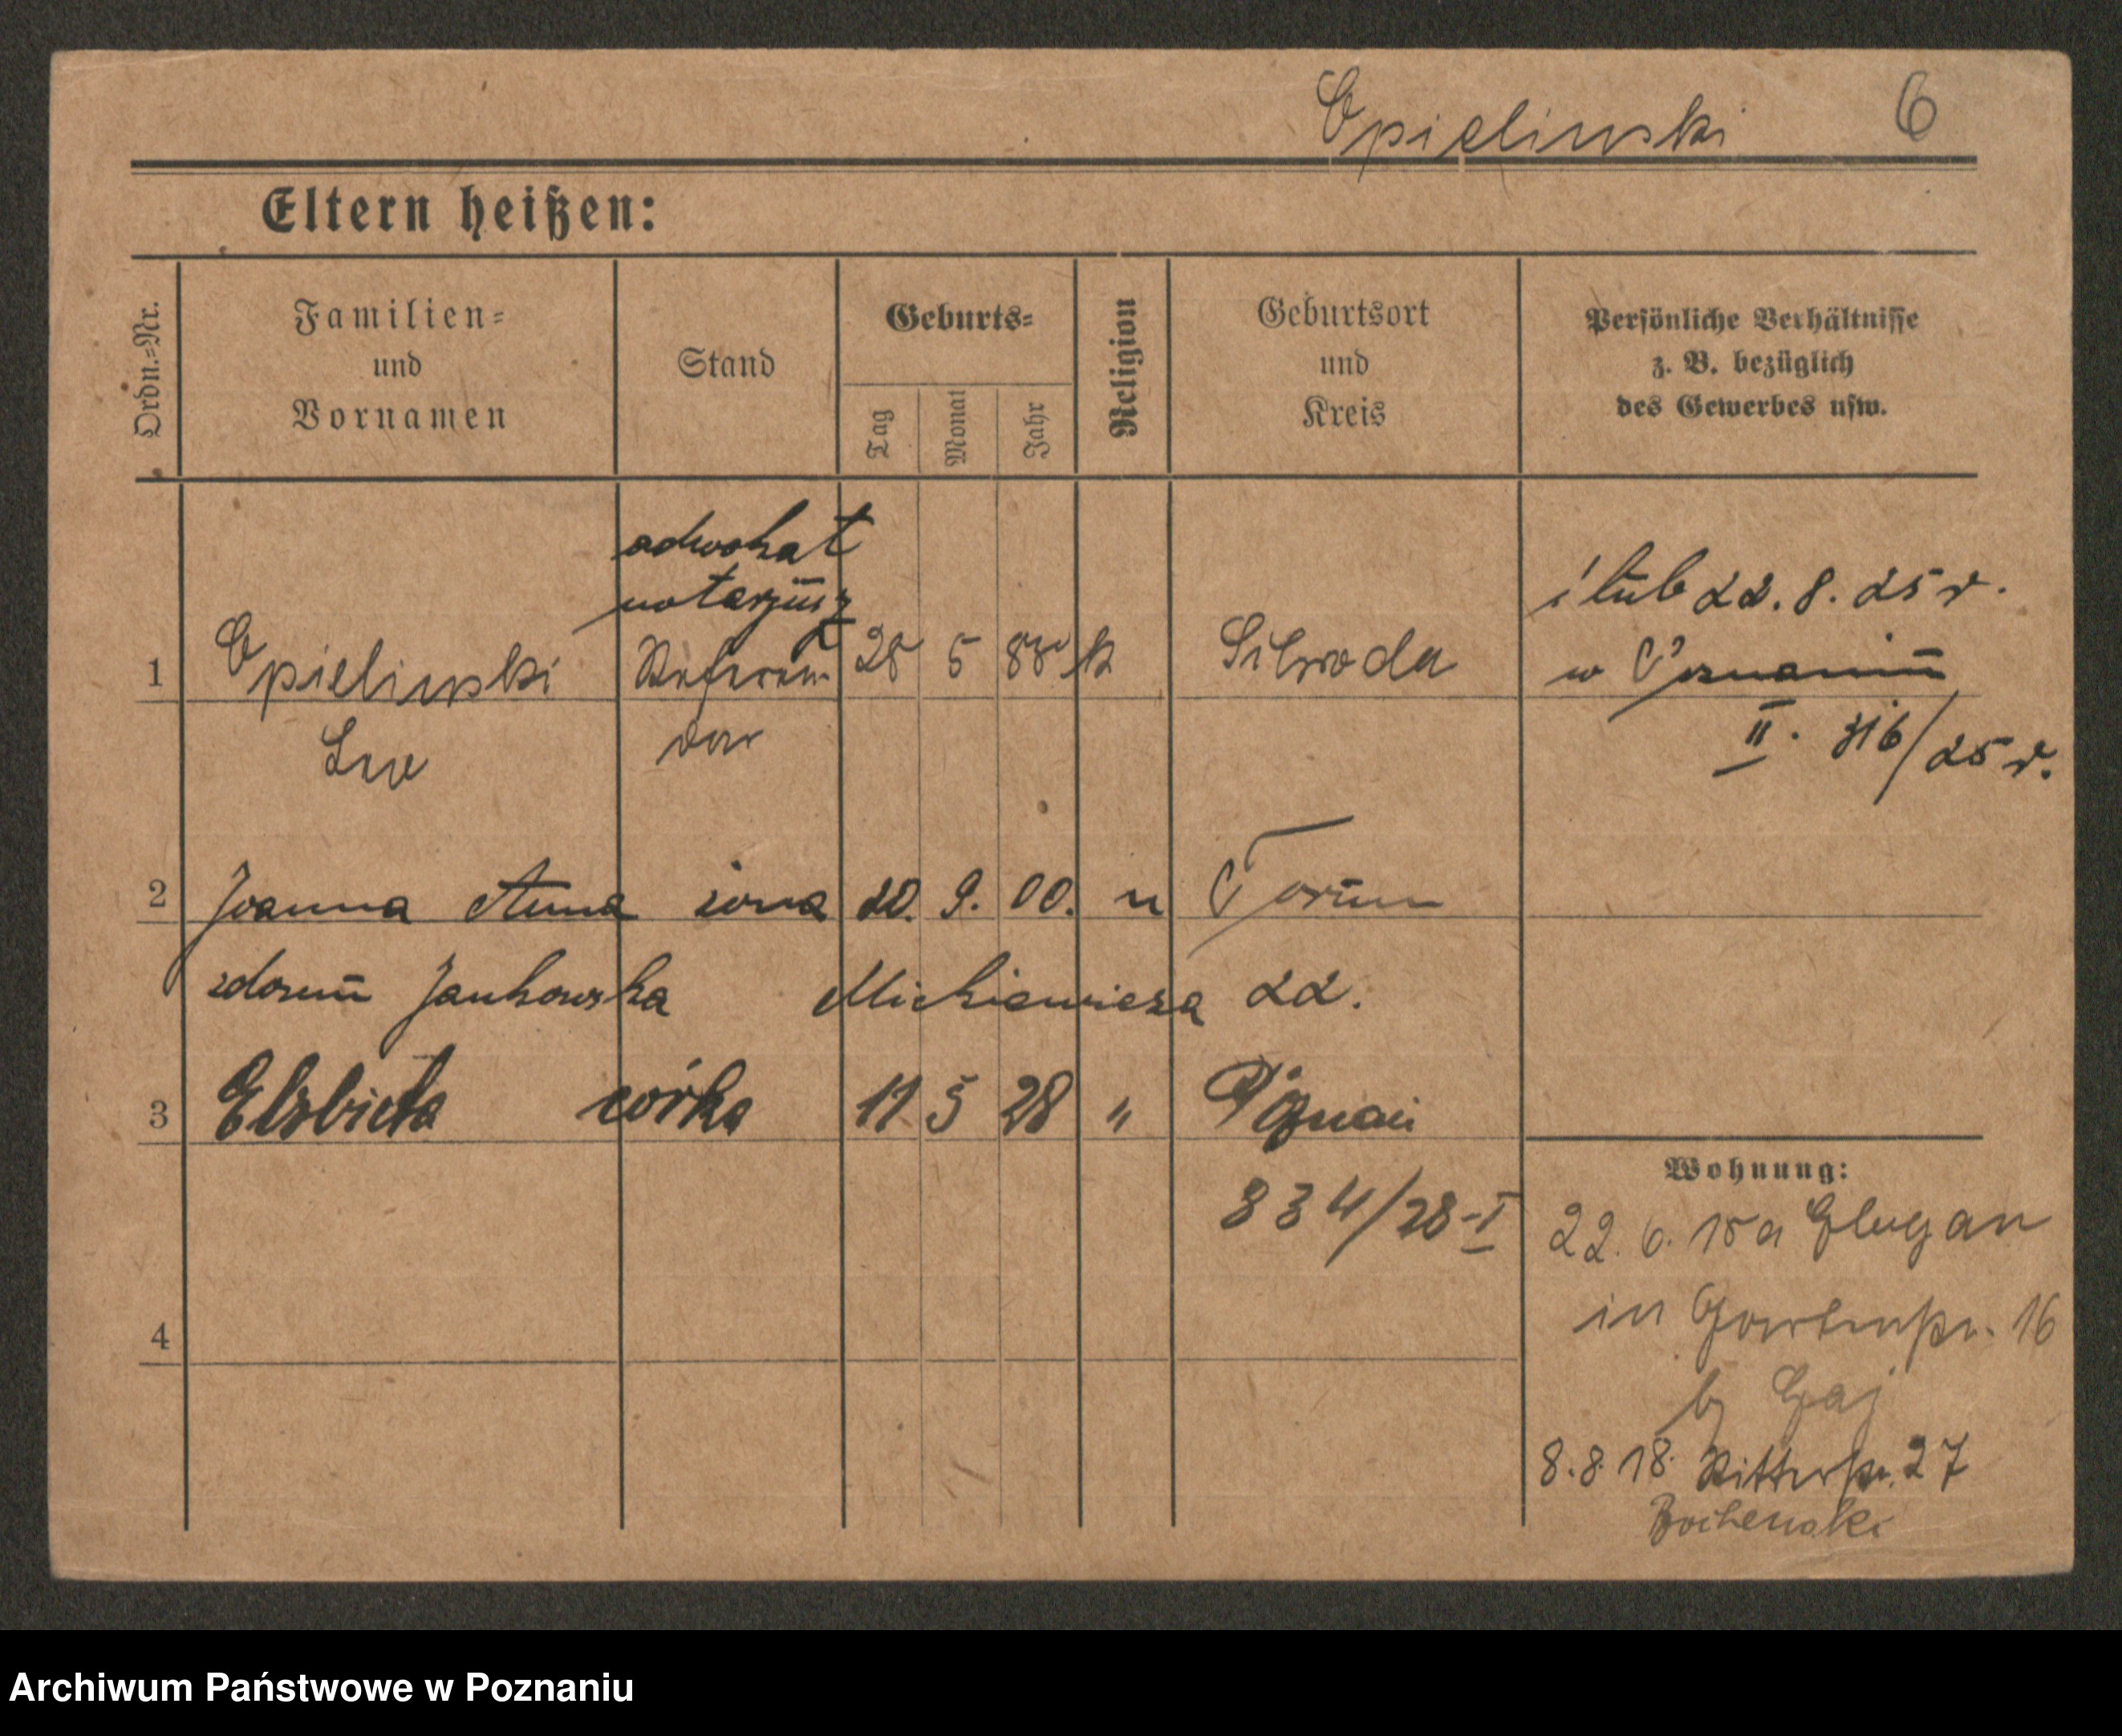 Opielinski 6
Eltern heißen:
Ordn.-Nr.
Familien-
und
Vornamen
Stand
Geburts-
Tag
Monat
Jahr
Religion
Geburtsort
und
Kreis
Persönliche Verhältnisse
z. B. bezüglich
des Gewerbes usw.
adwokat
notarjusz
1 Opielinski Referen- 28 5 88 k Schroda
Leo dar
ślub 22. 8. 25 r.
w Poznaniu
II. 316/25 r.
2 Joanna Anna żona 20. 9. 00. " Toruń
zdomu Jankowska Mickiewicza 22.
3 Elżbieta córka 11 5 28 " Poznań
334/28-I
4
Wohnung:
22. 6. 15 a Glogau
in Gartenstr. 16
b/ Gaj
8. 8. 18. Ritterstr. 27
Bochenski
Archiwum Państwowe w Poznaniu